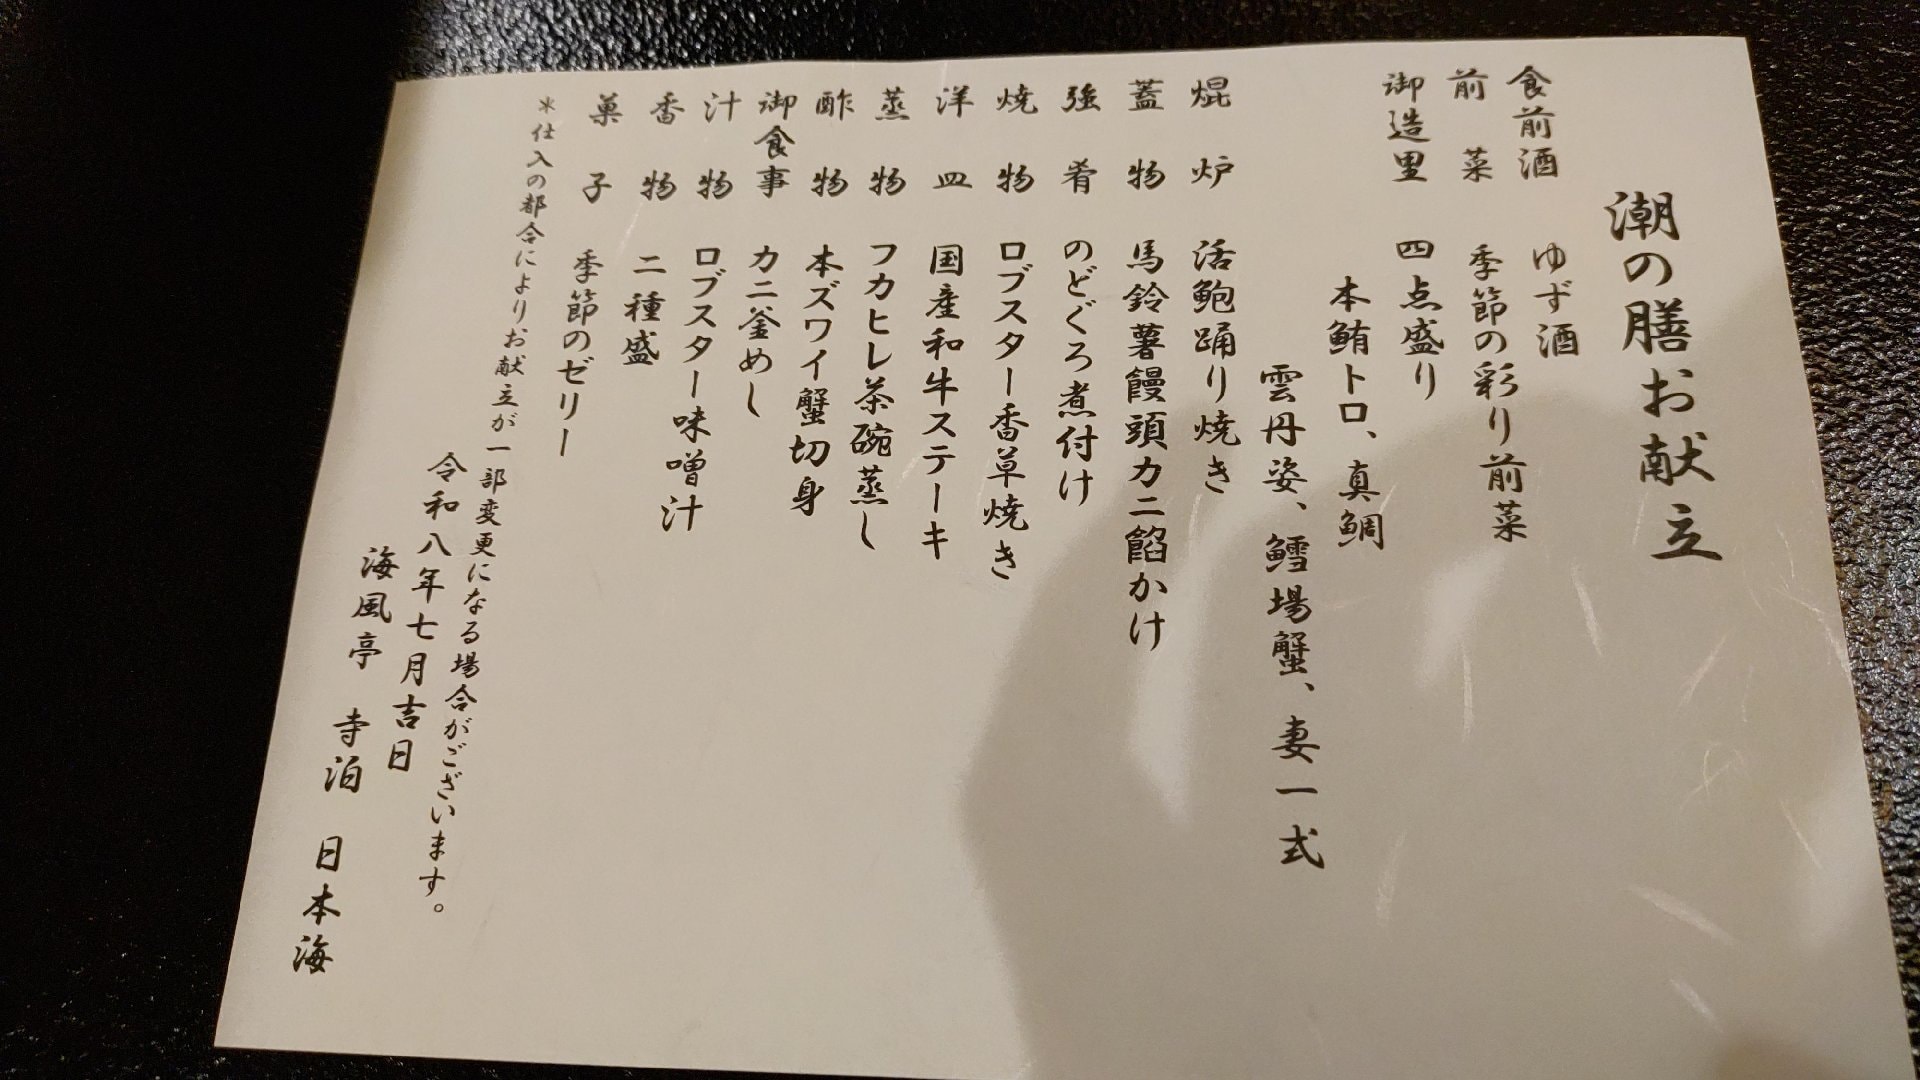 潮の膳お献立
食前酒 ゆず酒
前菜 季節の彩り前菜
御造里 四点盛り
本鮪トロ、真鯛
雲丹姿、鱈場蟹、妻一式
焜炉 活鮑踊り焼き
蓋物 馬鈴薯饅頭カニ餡かけ
強肴 のどぐろ煮付け
焼物 ロブスター香草焼き
洋皿 国産和牛ステーキ
蒸物 フカヒレ茶碗蒸し
酢物 本ズワイ蟹切身
御食事 カニ釜めし
汁物 ロブスター味噌汁
香物 二種盛
菓子 季節のゼリー
＊仕入の都合によりお献立が一部変更になる場合がございます。
令和八年七月吉日
海風亭 寺泊 日本海